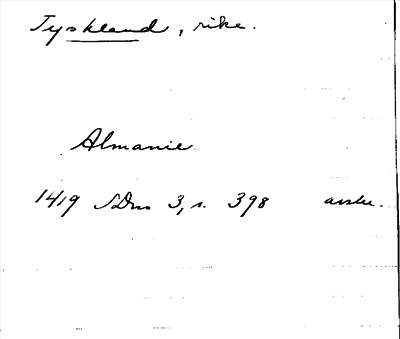 Tyskland, rike.
Almanie
1419 SDns 3, s. 398 avskr.